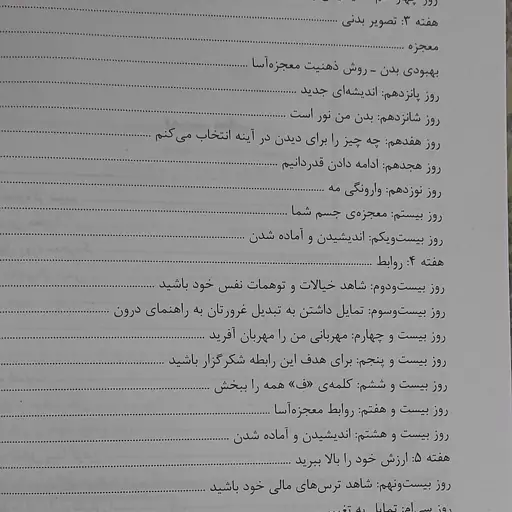 روز چهار
هفته ۳: تصویر بدنی
معجزه
بهبودی بدن ـ روش ذهنیت معجزه‌آسا
روز پانزدهم: اندیشه‌ای جدید
روز شانزدهم: بدن من نور است
روز هفدهم: چه چیز را برای دیدن در آینه انتخاب می‌کنم
روز هجدهم: ادامه دادن قدردانیم
روز نوزدهم: وارونگی مه
روز بیستم: معجزه‌ی جسم شما
روز بیست‌ویکم: اندیشیدن و آماده شدن
هفته ۴: روابط
روز بیست‌ودوم: شاهد خیالات و توهمات نفس خود باشید
روز بیست‌وسوم: تمایل داشتن به تبدیل غرورتان به راهنمای درون
روز بیست و چهارم: مهربانی من را مهربان آفرید
روز بیست و پنجم: برای هدف این رابطه شکرگزار باشید
روز بیست و ششم: کلمه‌ی «ف» همه را ببخش
روز بیست و هفتم: روابط معجزه‌آسا
روز بیست و هشتم: اندیشیدن و آماده شدن
هفته ۵: ارزش خود را بالا ببرید
روز بیست‌ونهم: شاهد ترس‌های مالی خود باشید
روز سی‌ام: تمایل به تغییر